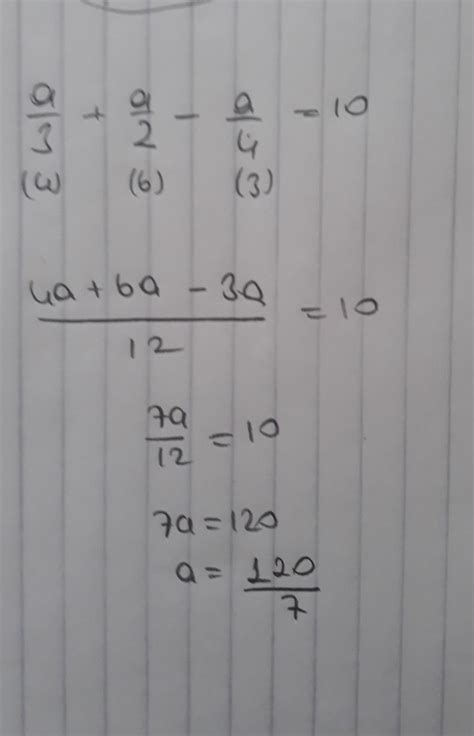 a/3 + a/2 - a/4 = 10
(4) (6) (3)
4a + 6a - 3a / 12 = 10
7a/12 = 10
7a = 120
a = 120/7